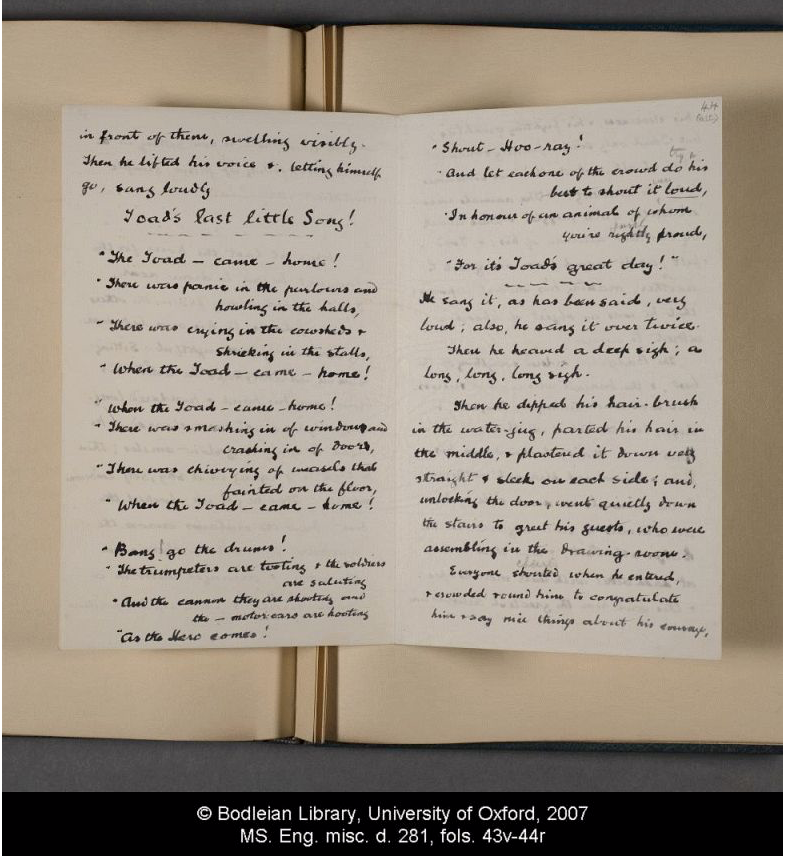 in front of them, swelling visibly.
Then he lifted his voice &. letting himself
go, sang loudly
Toad's last little Song!
"The Toad — came — home!
"There was panic in the parlours and
howling in the halls,
"There was crying in the cowsheds &
shrieking in the stalls,
"When the Toad — came — home!
"When the Toad — came — home!
"There was smashing in of windows and
crashing in of doors,
"There was chivvying of weasels that
fainted on the floor,
"When the Toad — came — home!
"Bang! go the drums!
"The trumpeters are tooting & the soldiers
are saluting
"And the cannon they are shooting and
the — motor-cars are hooting
"As the Hero comes!
44
"Shout — Hoo-ray!
try &
"And let each one of the crowd do his
best to shout it loud,
"In honour of an animal of whom
you're rightly proud,
"For it's Toad's great day!"
He sang it, as has been said, very
loud; also, he sang it over twice.
Then he heaved a deep sigh; a
long, long, long sigh.
Then he dipped his hair-brush
in the water-jug, parted his hair in
the middle, & plastered it down very
straight & sleek on each side; and,
unlocking the door, went quietly down
the stairs to greet his guests, who were
assembling in the drawing-room.
Everyone shouted when he entered,
& crowded round him to congratulate
him & say nice things about his courage,
© Bodleian Library, University of Oxford, 2007
MS. Eng. misc. d. 281, fols. 43v-44r